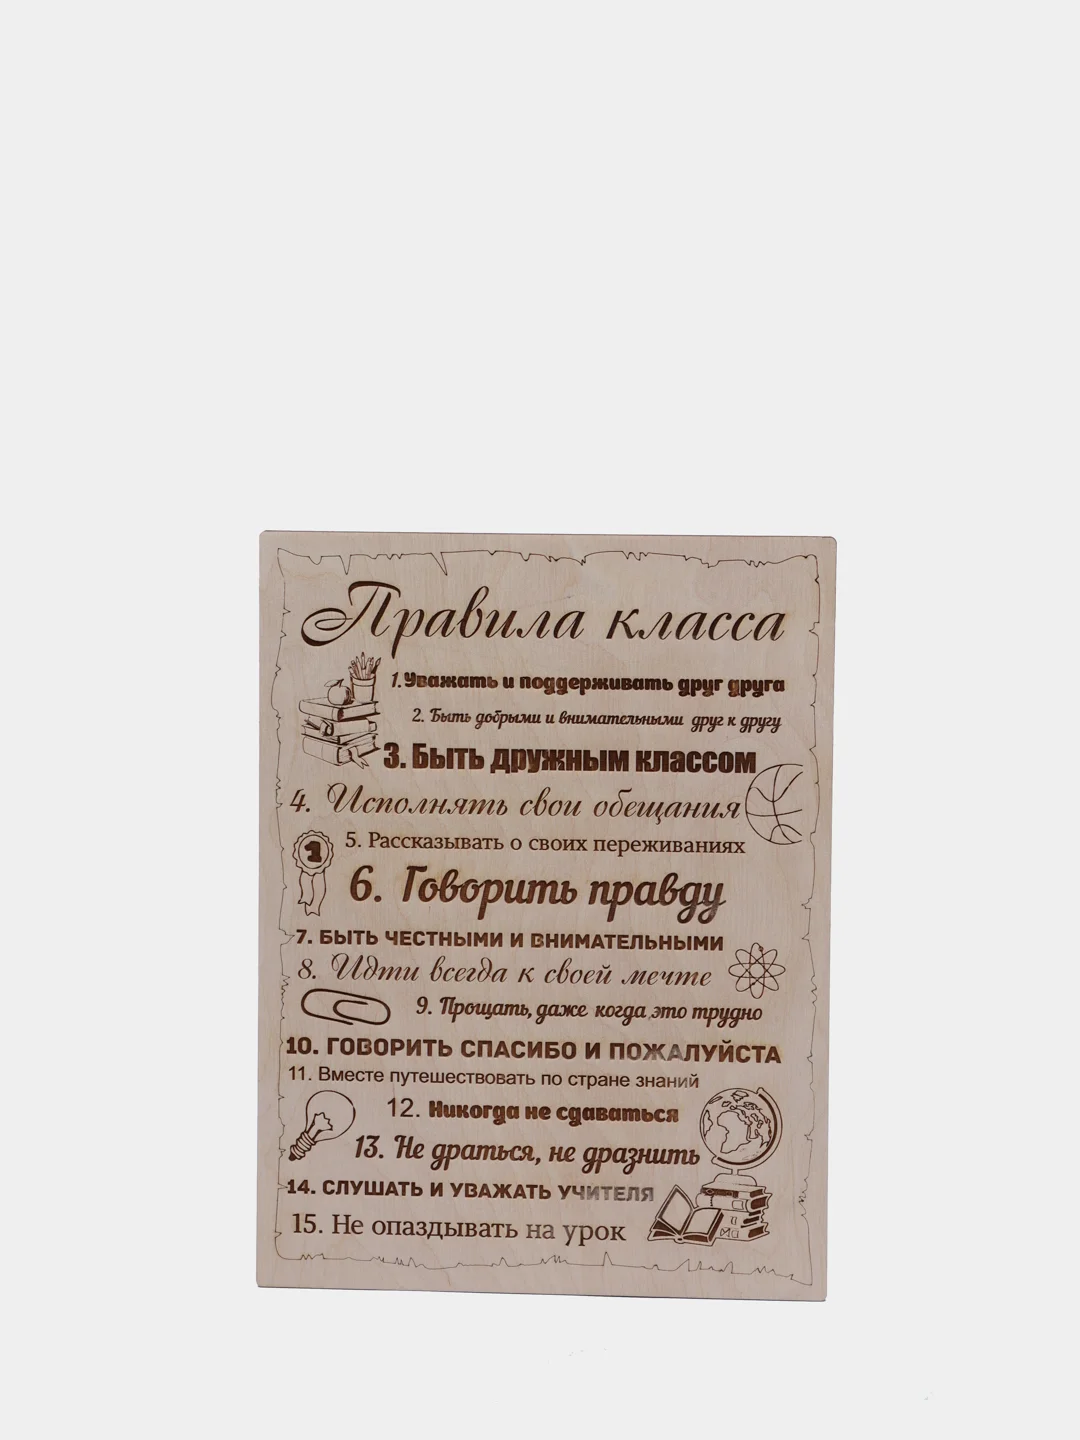 Правила класса
1. Уважать и поддерживать друг друга
2. Быть добрыми и внимательными друг к другу
3. Быть дружным классом
4. Исполнять свои обещания
1
5. Рассказывать о своих переживаниях
6. Говорить правду
7. БЫТЬ ЧЕСТНЫМИ И ВНИМАТЕЛЬНЫМИ
8. Идти всегда к своей мечте
9. Прощать, даже когда это трудно
10. ГОВОРИТЬ СПАСИБО И ПОЖАЛУЙСТА
11. Вместе путешествовать по стране знаний
12. Никогда не сдаваться
13. Не драться, не дразнить
14. СЛУШАТЬ И УВАЖАТЬ УЧИТЕЛЯ
15. Не опаздывать на урок